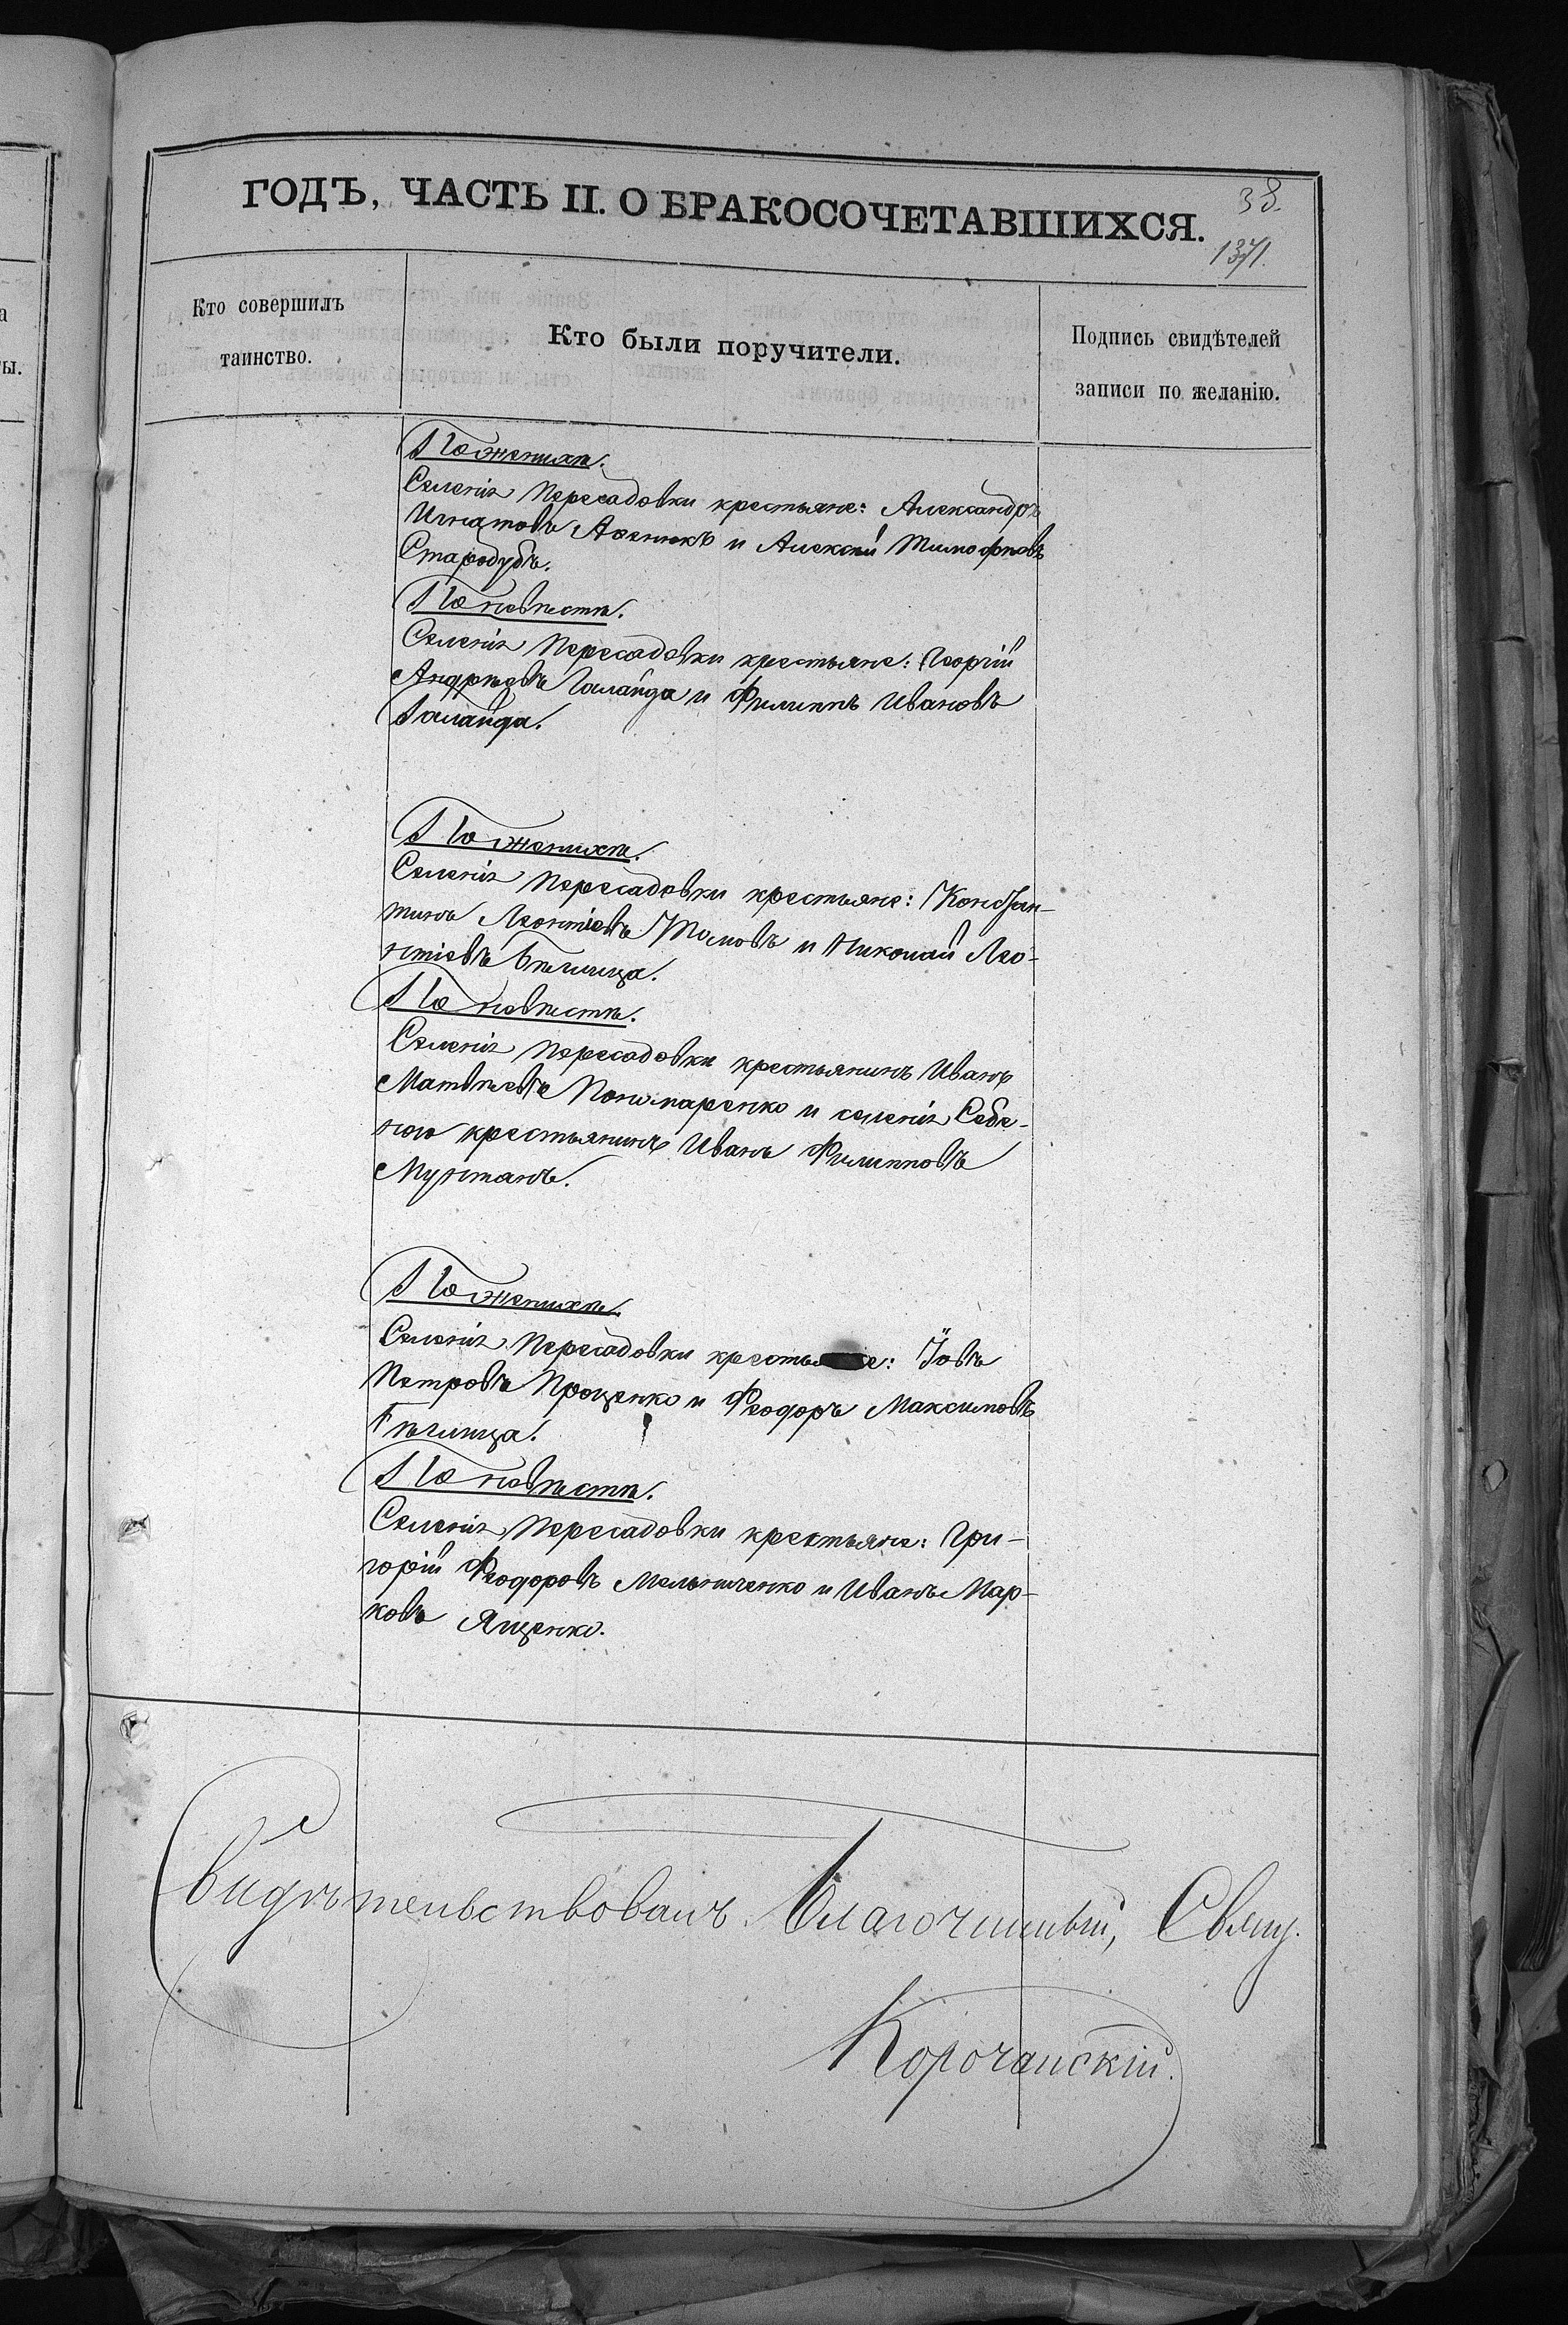 ГОДЪ, ЧАСТЬ II. О БРАКОСОЧЕТАВШИХСЯ.
38.
1371.
Кто совершилъ
таинство.
Кто были поручители.
Подпись свидѣтелей
записи по желанію.
По женихѣ.
Селенія Пересадовки крестьяне: Александръ
Игнатовъ и Алексѣй Тимофѣевъ
Стародубъ.
По невѣстѣ.
Селенія Пересадовки крестьяне: Георгій
Андрѣевъ Галайда и Филиппъ Ивановъ
Галайда.
По женихѣ.
Селенія Пересадовки крестьяне: Констан-
тинъ Леонтіевъ и Николай Лео-
нтіевъ Бѣлица.
По невѣстѣ.
Селенія Пересадовки крестьянинъ Иванъ
Матвѣевъ Пономаренко и селенія Себи-
ного крестьянинъ Иванъ Филипповъ
Мунтанъ.
По женихѣ.
Селенія Пересадовки крестьяне: Іовъ
Петровъ Проценко и Феодоръ Максимовъ
Бѣлица.
По невѣстѣ.
Селенія Пересадовки крестьяне: Гри-
горій Феодоровъ Мельниченко и Иванъ Мар-
ковъ Ященко.
Свидѣтельствовалъ Благочинный, Свящ.
Корочанскій.